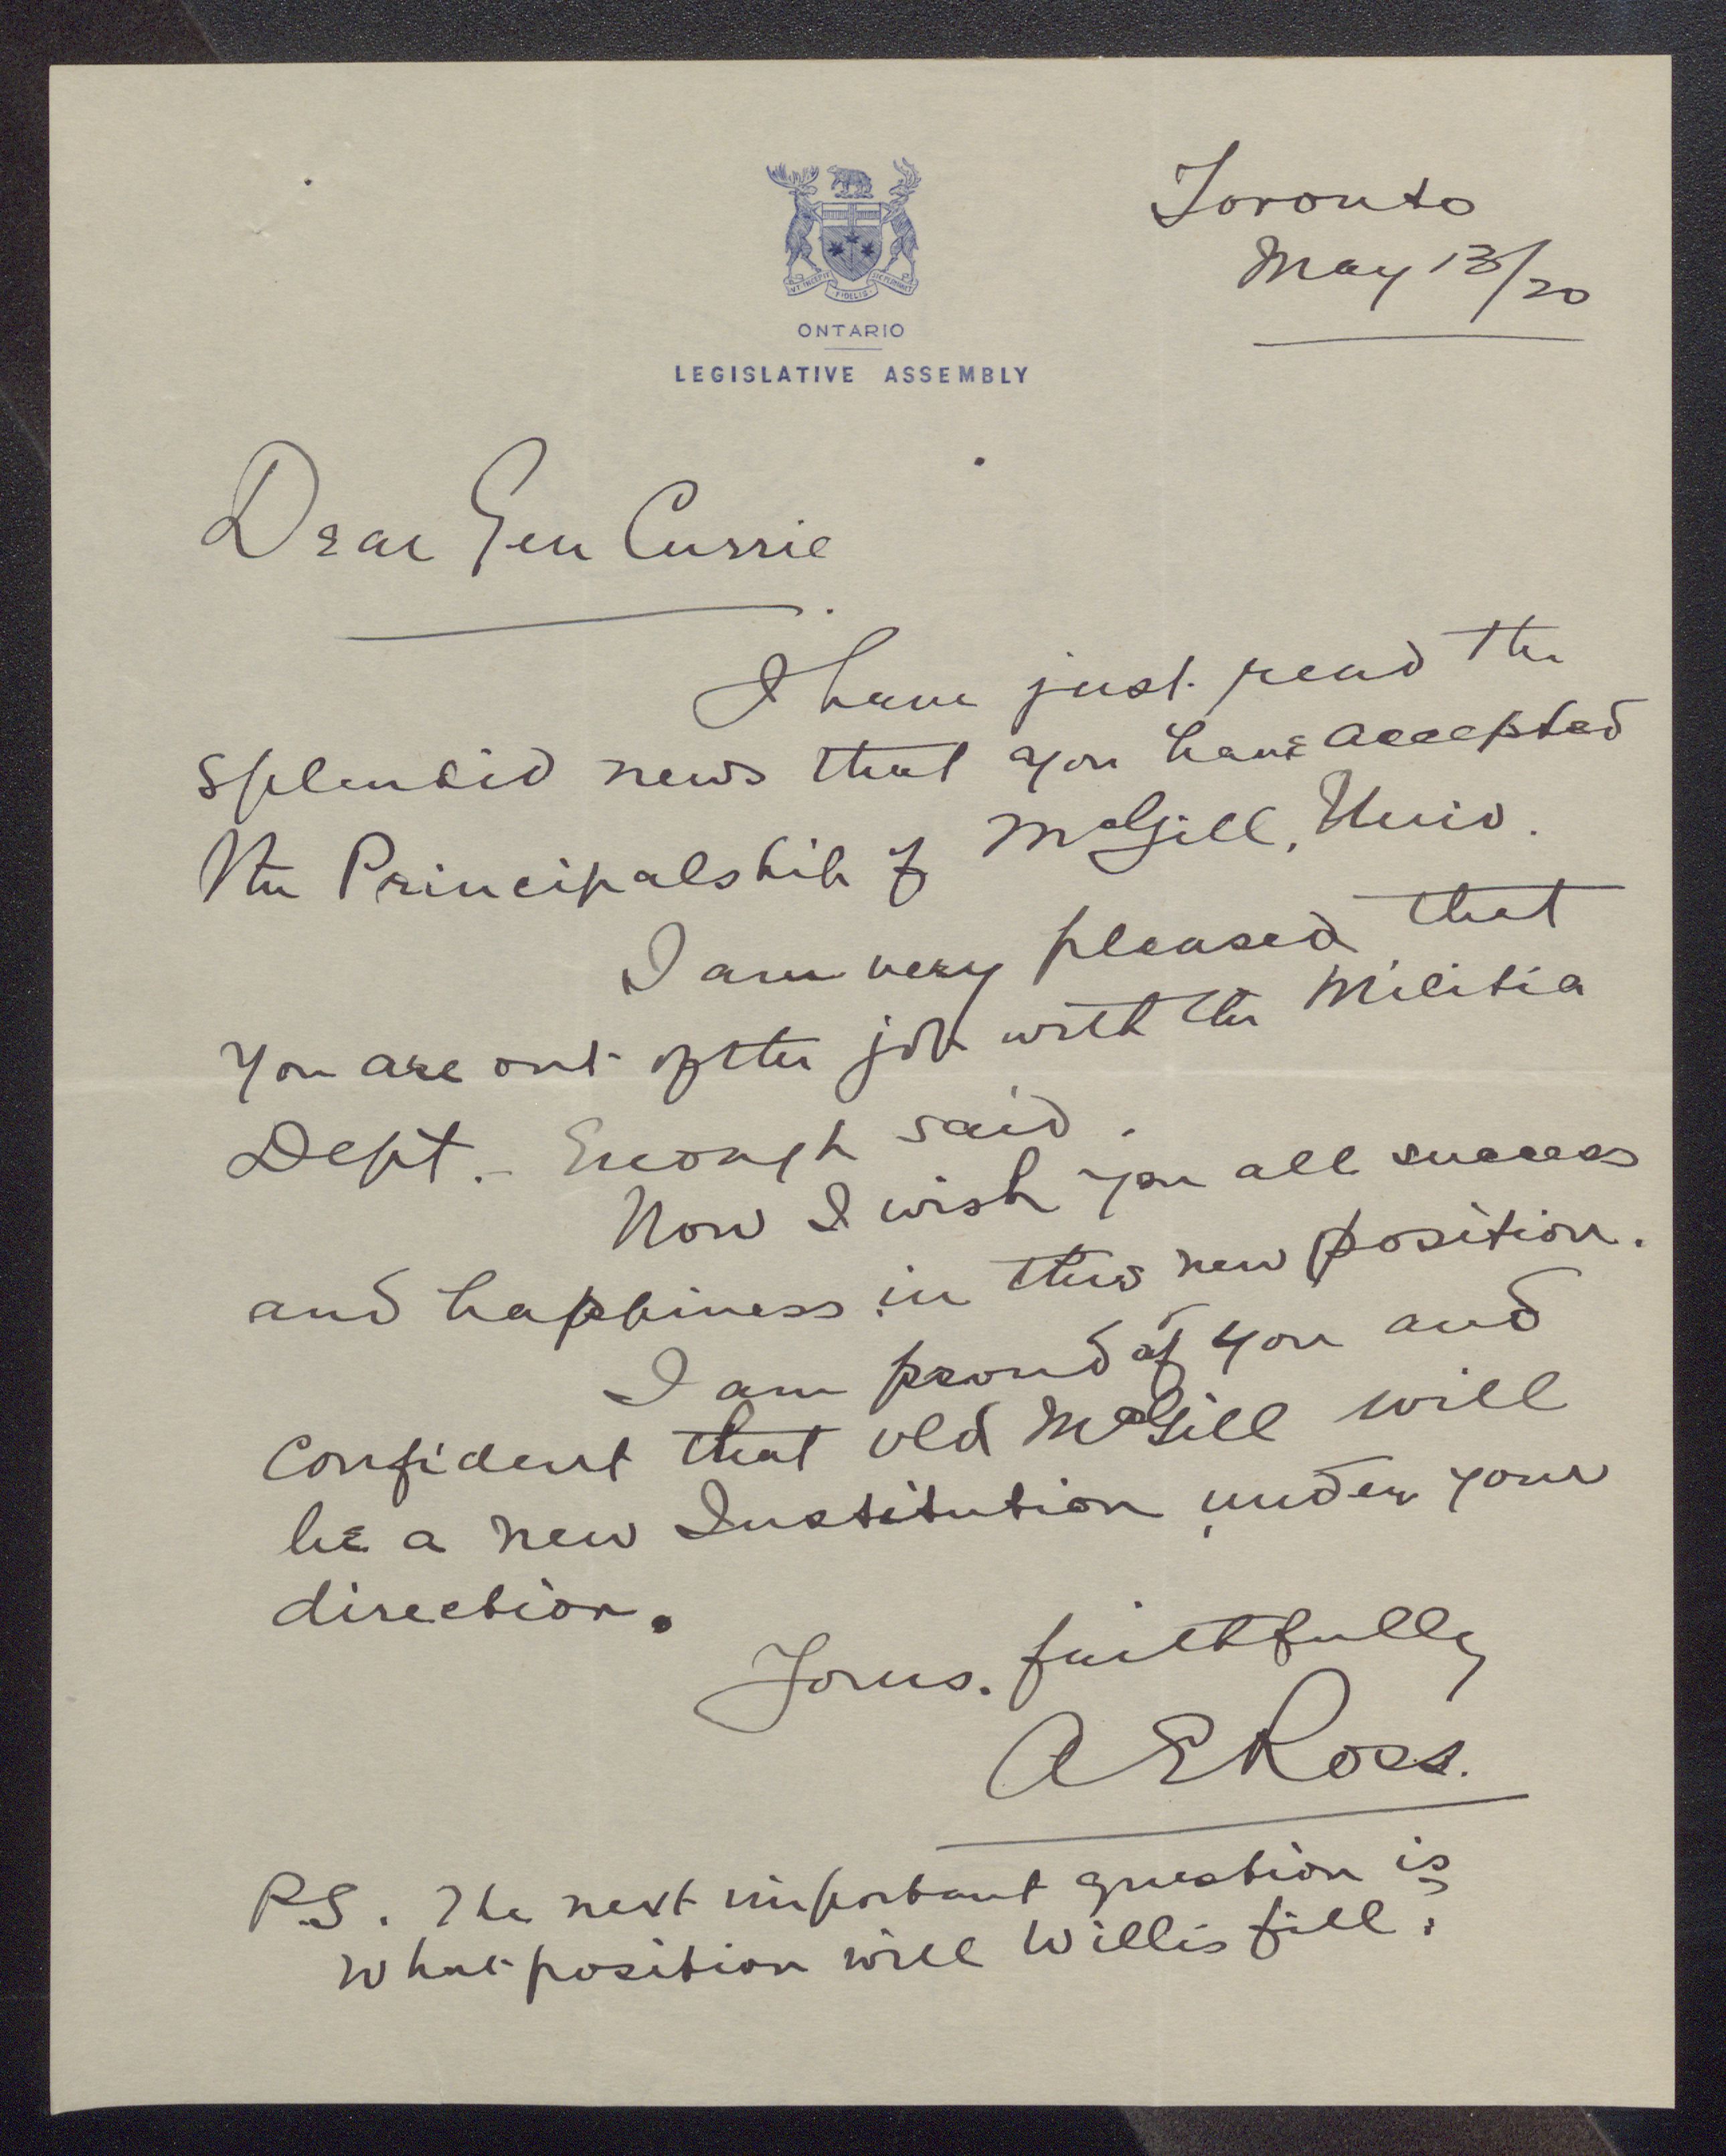 Toronto
May 13/20
UT INCEPIT
FIDELIS
SIC PERMANET
ONTARIO
LEGISLATIVE ASSEMBLY
Dear Gen Currie
I have just read the
splendid news that you have accepted
the Principalship of McGill, Univ.
I am very pleased that
you are out of the job with the Militia
Dept. - Enough said.
Now I wish you all success
and happiness in this new position.
I am proud of you and
confident that old McGill will
be a new Institution under your
direction.
Yours. faithfully
A E Ross.
P.S. The next important question is
what position will Willis fill?